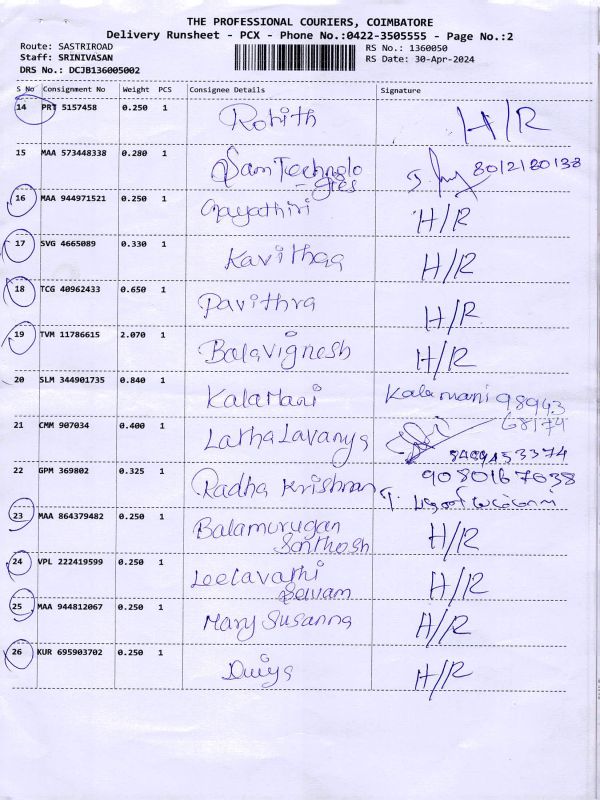 THE PROFESSIONAL COURIERS, COIMBATORE
Delivery Runsheet - PCX - Phone No.:0422-3505555 - Page No.:2
Route: SASTRIROAD RS No.: 1360050
Staff: SRINIVASAN RS Date: 30-Apr-2024
DRS No.: DCJB136005002
S No Consignment No Weight PCS Consignee Details Signature
14 PRT 5157458 0.250 1 Rohith H/R
15 MAA 573448338 0.280 1 Sam Technolo 8012180138
-gies
16 MAA 944971521 0.250 1 Gayathiri H/R
17 SVG 4665089 0.330 1 Kavithaa H/R
18 TCG 40962433 0.650 1 Pavithra H/R
19 TVM 11786615 2.070 1 Balavignesh H/R
20 SLM 344901735 0.840 1 KalaMani Kalamani 98943
68174
21 CMM 907034 0.400 1 Latha Lavanya
22 GPM 369802 0.325 1 Radha Krishnan 9080167038
23 MAA 864379482 0.250 1 Balamurugan H/R
Santhosh
24 VPL 222419599 0.250 1 Leelavathi H/R
25 MAA 944812067 0.250 1 Mary Susanna H/R
26 KUR 695903702 0.250 1 Diviya H/R